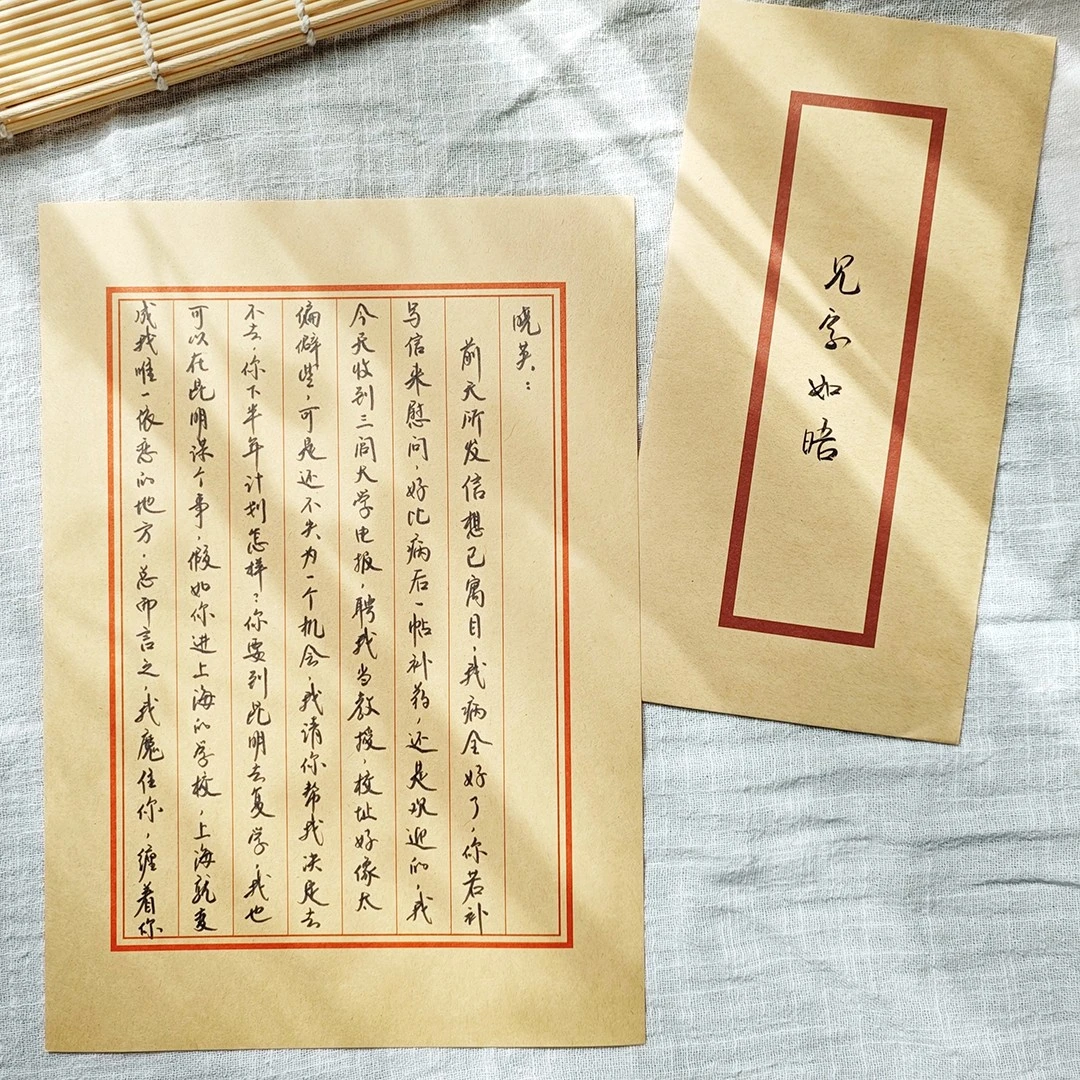 晓英：
前天所发信想已寓目，我病全好了，你若补
写信来慰问，好比病后一帖补药，还是欢迎的，我
今天收到三闾大学电报，聘我当教授，校址好像太
偏僻些，可是还不失为一个机会，我请你帮我决定去
不去，你下半年计划怎样？你要到昆明去复学，我也
可以在昆明谋个事，假如你进上海的学校，上海就变
成我唯一依恋的地方，总而言之，我魔住你，缠着你
见字如晤